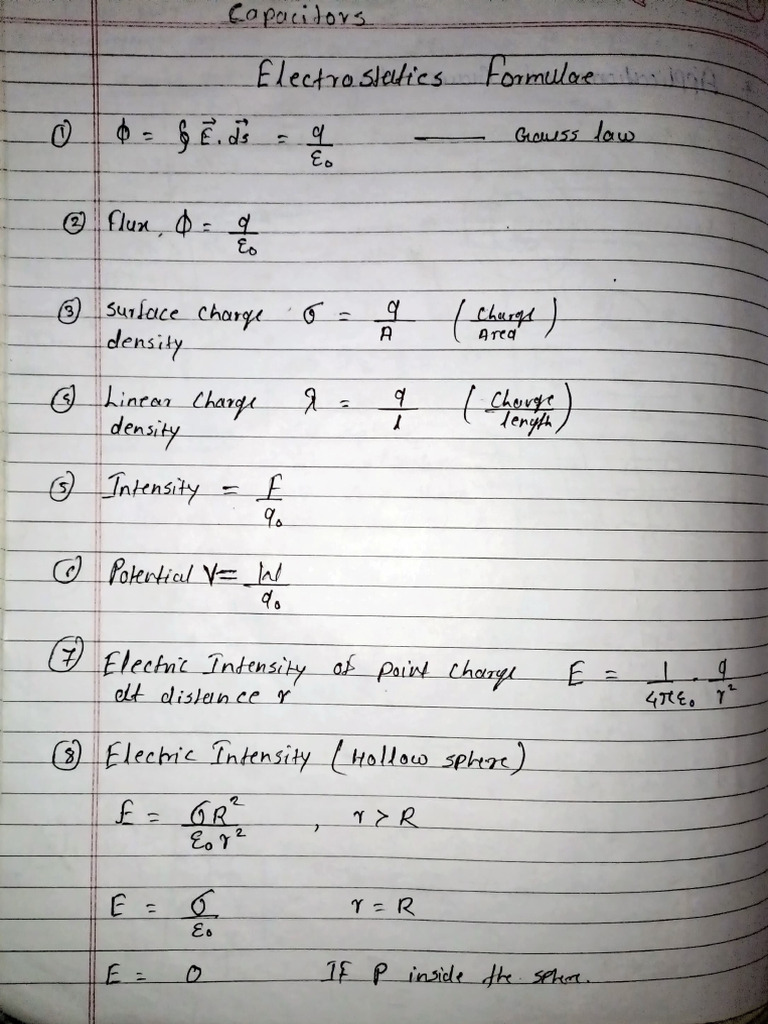 Capacitors
Electrostatics Formulae
① ϕ = ∮ E⃗. ds⃗ = q/ε₀ —— Gauss law
② Flux, ϕ = q/ε₀
③ Surface charge σ = q/A (Charge/Area)
density
④ Linear Charge λ = q/l (Charge/length)
density
⑤ Intensity = F/q₀
⑥ Potential V = W/q₀
⑦ Electric Intensity of point charge E = 1/4πε₀ . q/r²
at distance r
⑧ Electric Intensity (Hollow sphere)
E = σR²/ε₀r² , r > R
E = σ/ε₀ r = R
E = 0 IF P inside the sphere.